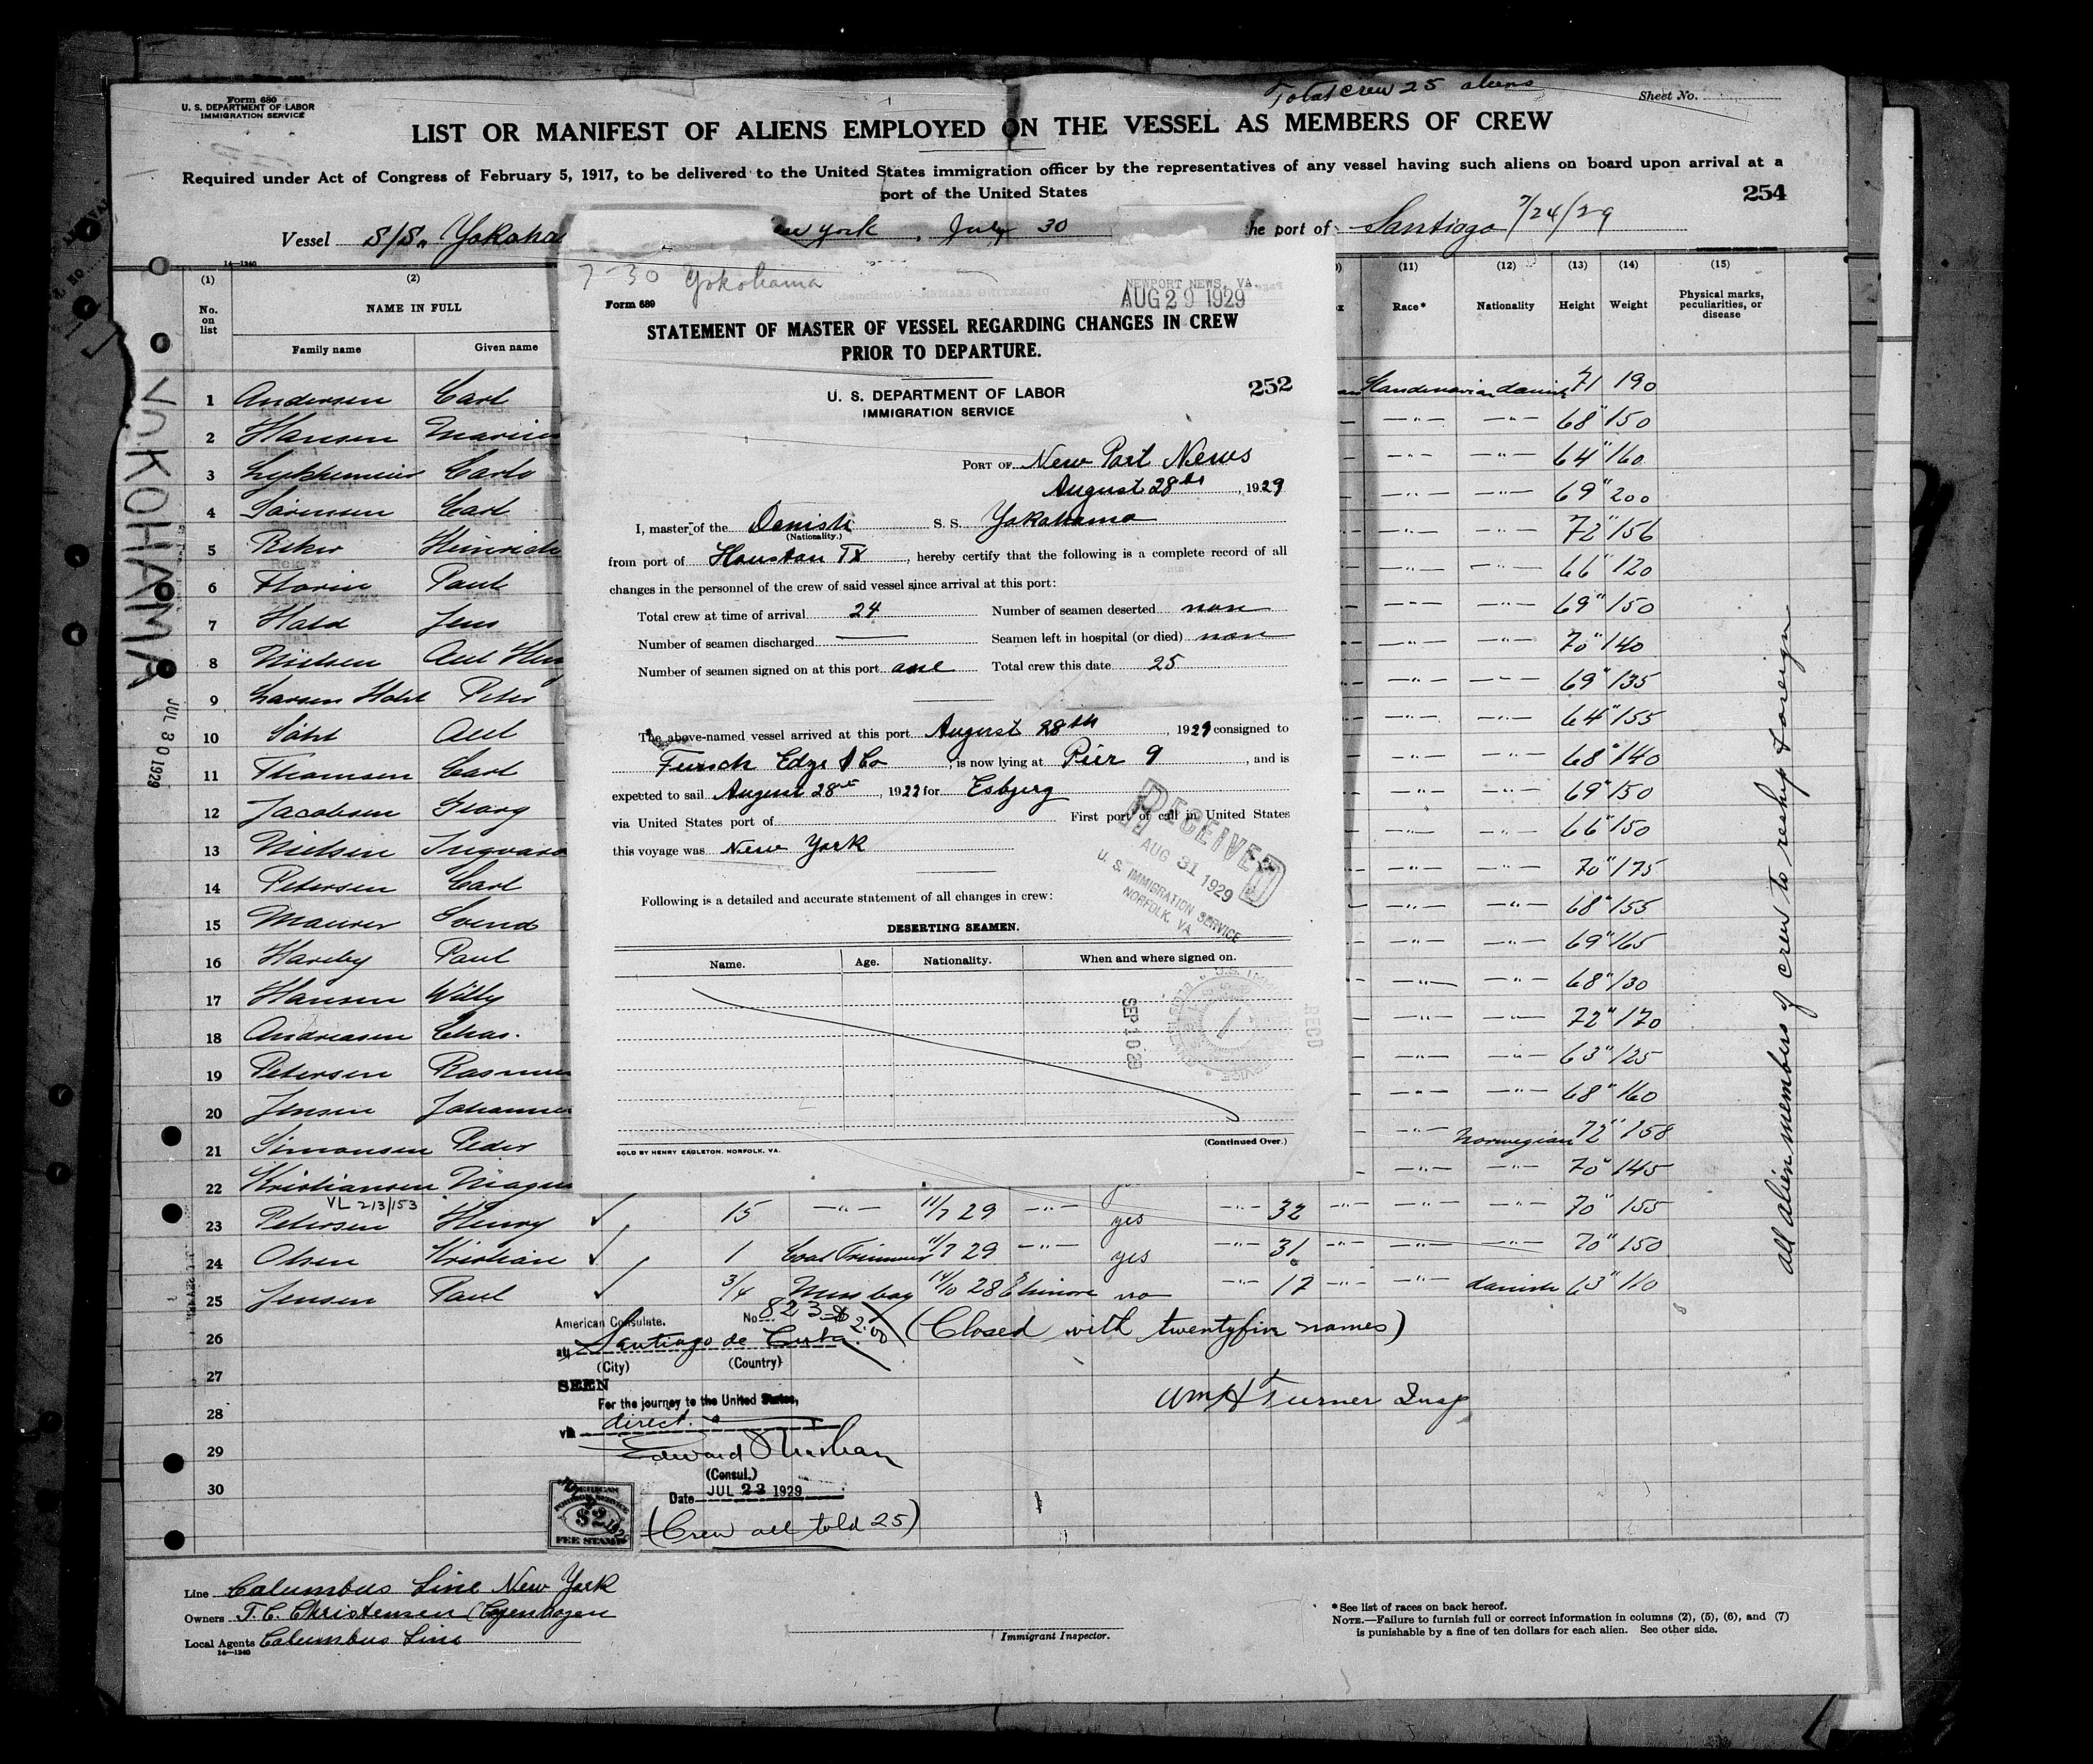 Total crew 25 aliens
Form 680
U. S. DEPARTMENT OF LABOR
IMMIGRATION SERVICE
Sheet No.
LIST OR MANIFEST OF ALIENS EMPLOYED ON THE VESSEL AS MEMBERS OF CREW
Required under Act of Congress of February 5, 1917, to be delivered to the United States immigration officer by the representatives of any vessel having such aliens on board upon arrival at a
port of the United States
254
Vessel S/S. Yokoha
ew York, July 30
he port of Santiago 7/24/29
14—1240
(1) (2) (11) (12) (13) (14) (15)
No. on list
NAME IN FULL
Family name Given name
Race* Nationality Height Weight Physical marks, peculiarities, or disease
YOKOHAMA
JUL 30 1929
1 Andersen Carl Scandinavian danish 71 190
2 Hansen Marius 68" 150
3 Carlo 64" 160
4 Sörensen Carl 69" 200
5 Reker Heinrich 72" 156
6 Florin Paul 66" 120
7 Hald Jens 69" 150
8 Nielsen 70" 140
9 Larsen Holst Peter 69" 135
10 64" 155
11 Thomsen Carl 68" 140
12 Jacobsen Georg 69" 150
13 Nielsen Ingvard 66" 150
14 Petersen Carl 70" 175
15 Maurer Svend 68" 155
16 Hareby Paul 69" 165
17 Hansen Willy 68" 130
18 Andreasen Chas. 72" 170
19 Petersen Rasmus 63" 125
20 Jensen Johannes 68" 160
21 Simonsen Peder Norwegian 72" 158
22 Kristiansen Magnu 70" 145
VL 213/153
23 Petersen Henry 15 11/7 29 yes 32 70" 155
24 Olsen Kristian 1 Coal Trimmer 11/7 29 yes 31 70" 150
25 Jensen Paul 3/4 Mess boy 14/10 28 Elsinore no 17 danish 63" 110
26
27
28
29
30
all alien members of crew to reship foreign
7-30 Yokohama
NEWPORT NEWS, VA.
AUG 29 1929
Form 689
STATEMENT OF MASTER OF VESSEL REGARDING CHANGES IN CREW
PRIOR TO DEPARTURE.
U. S. DEPARTMENT OF LABOR
IMMIGRATION SERVICE
252
PORT OF New Port News
August 28th, 1929
I, master of the Danish S. S. Yokohama
(Nationality.)
from port of Houston Tx, hereby certify that the following is a complete record of all
changes in the personnel of the crew of said vessel since arrival at this port:
Total crew at time of arrival 24 Number of seamen deserted non
Number of seamen discharged — Seamen left in hospital (or died) non
Number of seamen signed on at this port one Total crew this date 25
The above-named vessel arrived at this port August 28th, 1929 consigned to
Funch Edye & Co, is now lying at Pier 9, and is
expected to sail August 28th, 1929 for Esbjerg
via United States port of First port of call in United States
this voyage was New York
RECEIVED
AUG 31 1929
U. S. IMMIGRATION SERVICE
NORFOLK, VA.
Following is a detailed and accurate statement of all changes in crew:
DESERTING SEAMEN.
Name. Age. Nationality. When and where signed on.
SEP 10 29
REC'D
(Continued Over.)
SOLD BY HENRY EAGLETON, NORFOLK, VA.
American Consulate. No. 823 $2.00
at Santiago de Cuba
(City) (Country)
(Closed with twentyfive names)
SEEN
For the journey to the United States,
via direct.
Wm H Turner Insp
Edward
(Consul.)
Date JUL 23 1929
(Crew all told 25)
AMERICAN
FOREIGN SERVICE
$2
FEE STAMP
Line Columbus Line New York
Owners T. C. Christensen Copenhagen
Local Agents Columbus Line
14—1240
Immigrant Inspector.
*See list of races on back hereof.
NOTE.—Failure to furnish full or correct information in columns (2), (5), (6), and (7)
is punishable by a fine of ten dollars for each alien. See other side.